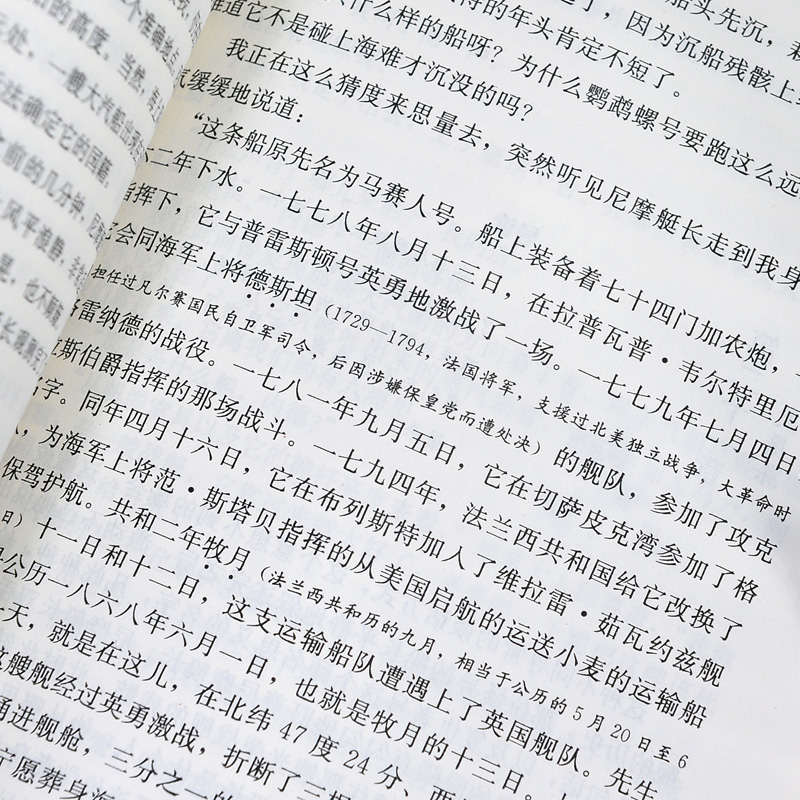 个准确地点
的高度。当然，
处，一艘大汽船出现
法确定它的国籍。
前的几分钟，
风平浪静，
是，也不
船头先沉，
的年头肯定不短了。
了，因为沉船残骸上
什么样的船呀？为什么鹦鹉螺号要跑这么远
难道它不是碰上海难才沉没的吗？
我正在这么猜度来思量去，突然听见尼摩艇长走到我身
气缓缓地说道：
“这条船原先名为马赛人号。船上装备着七十四门加农炮，
六二年下水。一七七八年八月十三日，在拉普瓦普·韦尔特里厄
指挥下，它与普雷斯顿号英勇地激战了一场。一七七九年七月四日
它会同海军上将德斯坦（1729—1794，法国将军，支援过北美独立战争，大革命时
担任过凡尔赛国民自卫军司令，后因涉嫌保皇党而遭处决）的舰队，参加了攻克
格雷纳德的战役。一七八一年九月五日，它在切萨皮克湾参加了格
拉斯伯爵指挥的那场战斗。一七九四年，法兰西共和国给它改换了
名字。同年四月十六日，它在布列斯特加入了维拉雷·茹瓦约兹舰
，为海军上将范·斯塔贝指挥的从美国启航的运送小麦的运输船
保驾护航。共和二年牧月（法兰西共和历的九月，相当于公历的5月20日至6
日）十一日和十二日，这支运输船队遭遇上了英国舰队。先生
公历一八六八年六月一日，也就是牧月的十三日。
一天，就是在这儿，在北纬47度24分、西
这艘舰经过英勇激战，折断了三根
涌进舰舱，三分之一的
宁愿葬身海